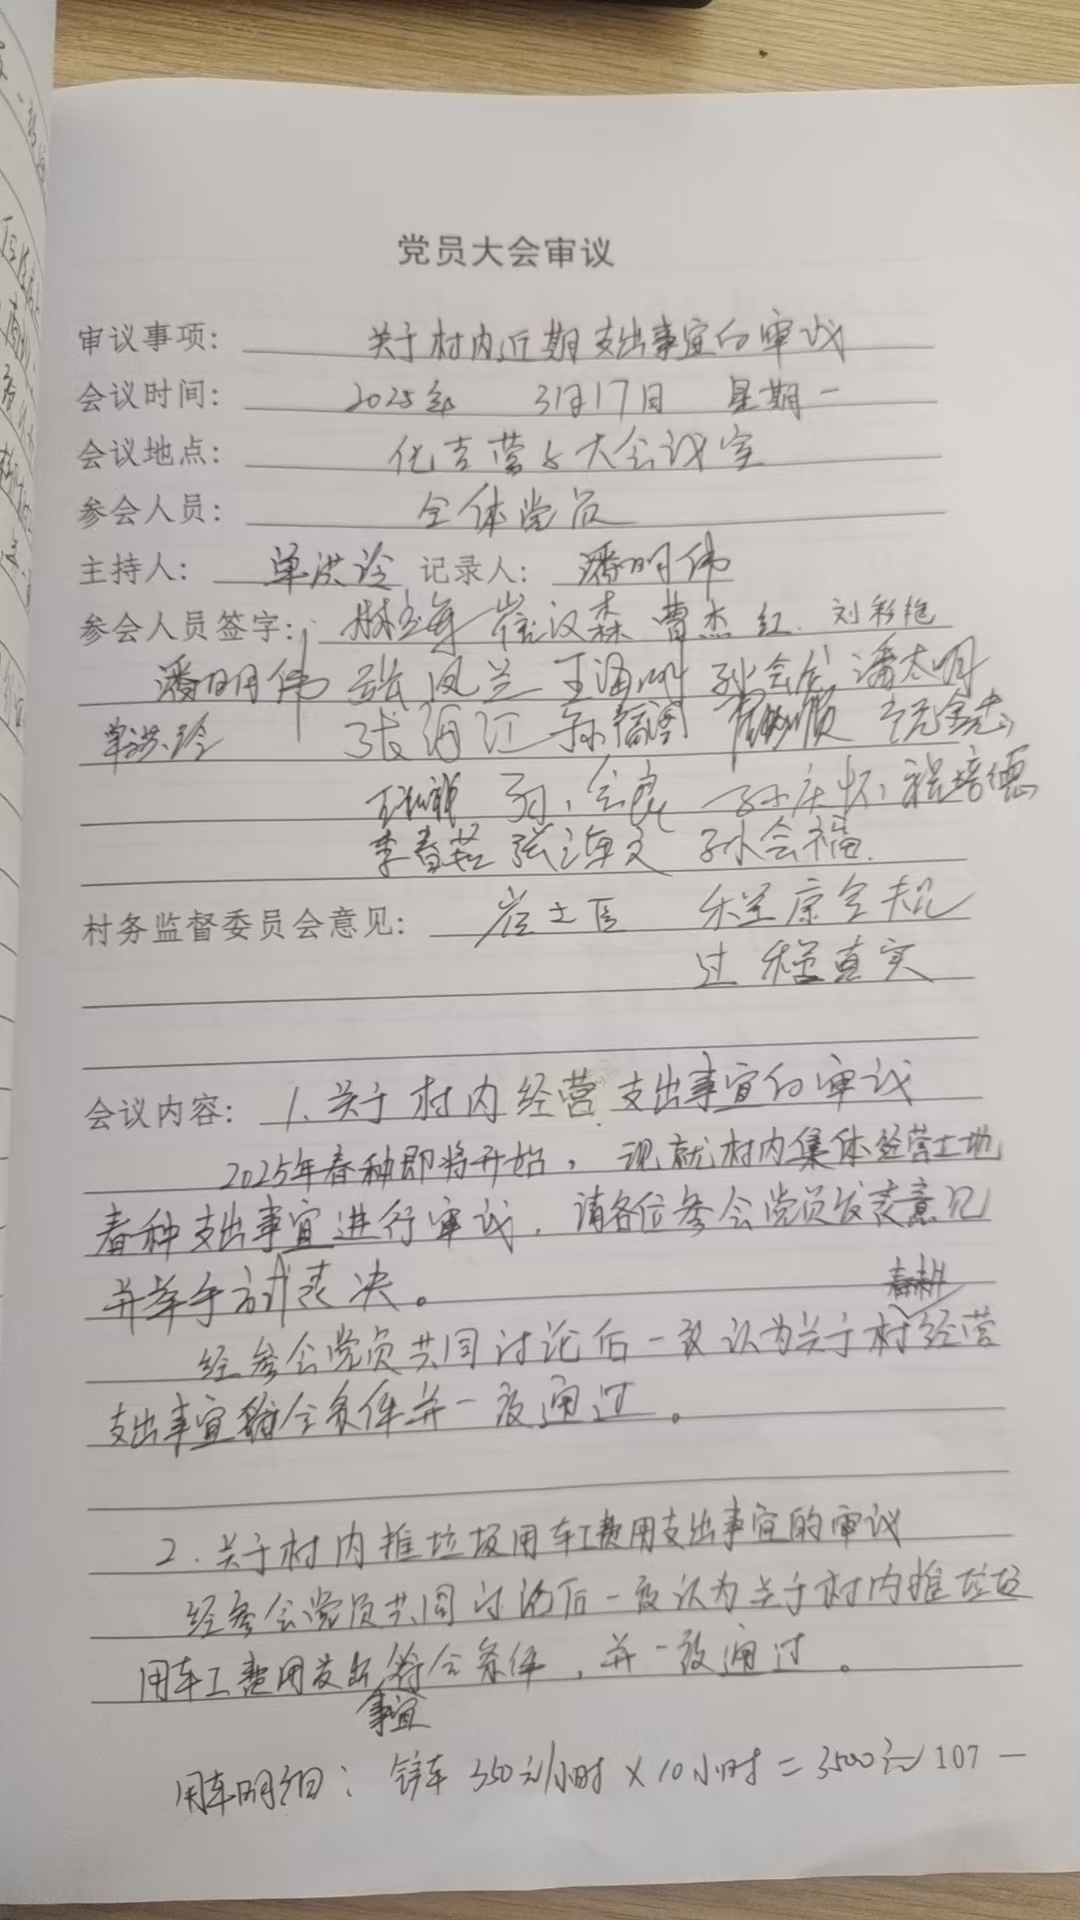 党员大会审议
审议事项： 关于村内近期支出事宜的审议
会议时间： 2025年 3月17日 星期一
会议地点： 化吉营子大会议室
参会人员： 全体党员
主持人： 单洪玲 记录人： 潘明伟
参会人员签字： 林玉海 崔汉森 曹杰红 刘彩艳
潘明伟 张凤兰 王海明 孙会龙 潘太明
单洪玲 张海江 孙福图
孙会良 孙庆怀 程培德
李春茹 张海文 孙会福
村务监督委员会意见： 程序合规
过程真实
会议内容： 1.关于村内经营支出事宜的审议
2025年春种即将开始，现就村内集体经营土地
春种支出事宜进行审议，请各位参会党员发表意见
并举手方式表决。
春耕
经参会党员共同讨论后一致认为关于村经营
支出事宜符合条件并一致通过。
2.关于村内推垃圾用车工费用支出事宜的审议
经参会党员共同讨论后一致认为关于村内推垃圾
用车工费用支出符合条件，并一致通过。
事宜
用车明细： 铲车 350元/小时×10小时=3500元 107 一